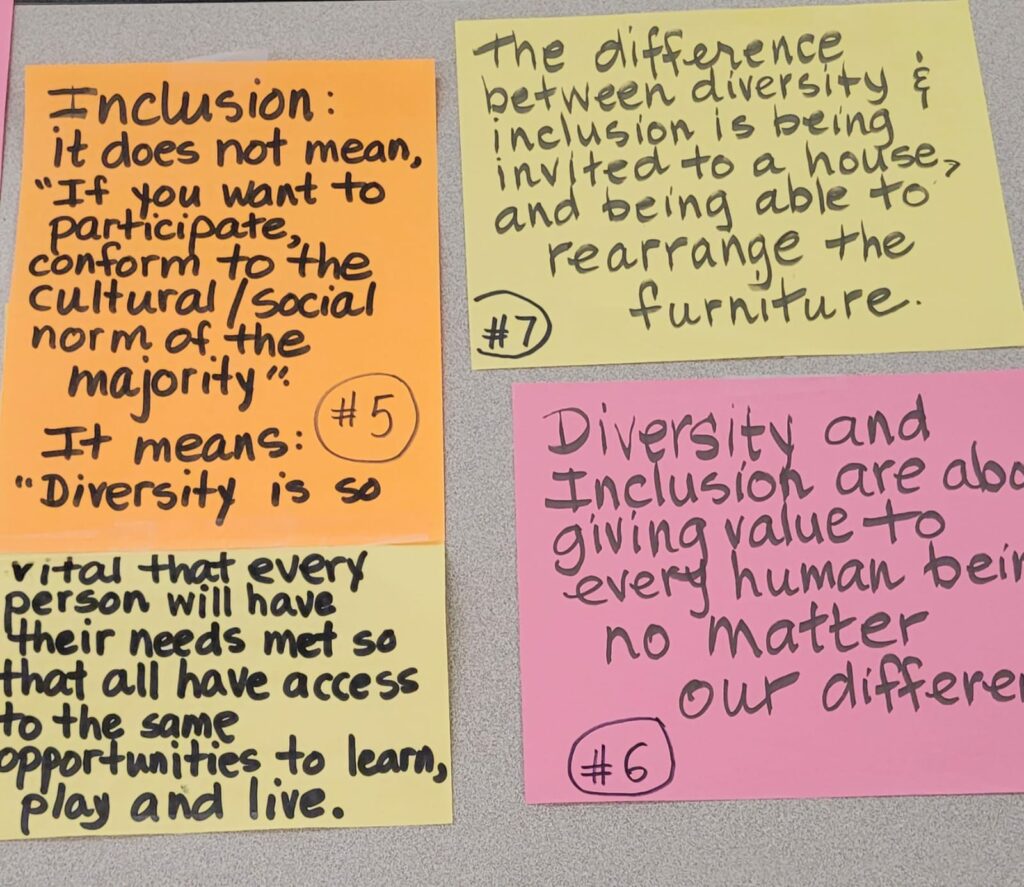 Inclusion:
it does not mean,
"If you want to
participate,
conform to the
cultural/social
norm of the
majority".
#5
It means:
"Diversity is so
vital that every
person will have
their needs met so
that all have access
to the same
opportunities to learn,
play and live.
The difference
between diversity &
inclusion is being
invited to a house,
and being able to
rearrange the
furniture.
#7
Diversity and
Inclusion are abo
giving value to
every human bein
no matter
our differen
#6